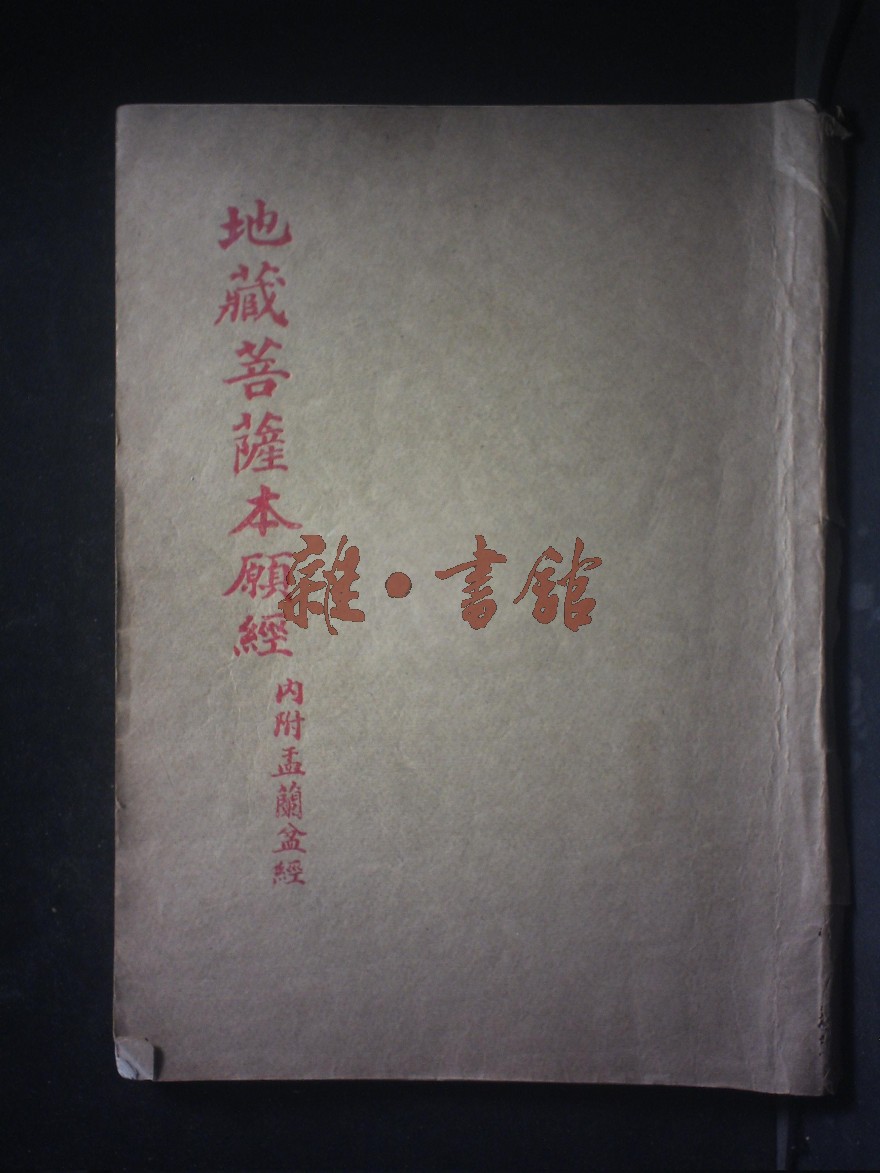 地藏菩薩本願經
內附盂蘭盆經
雜·書館